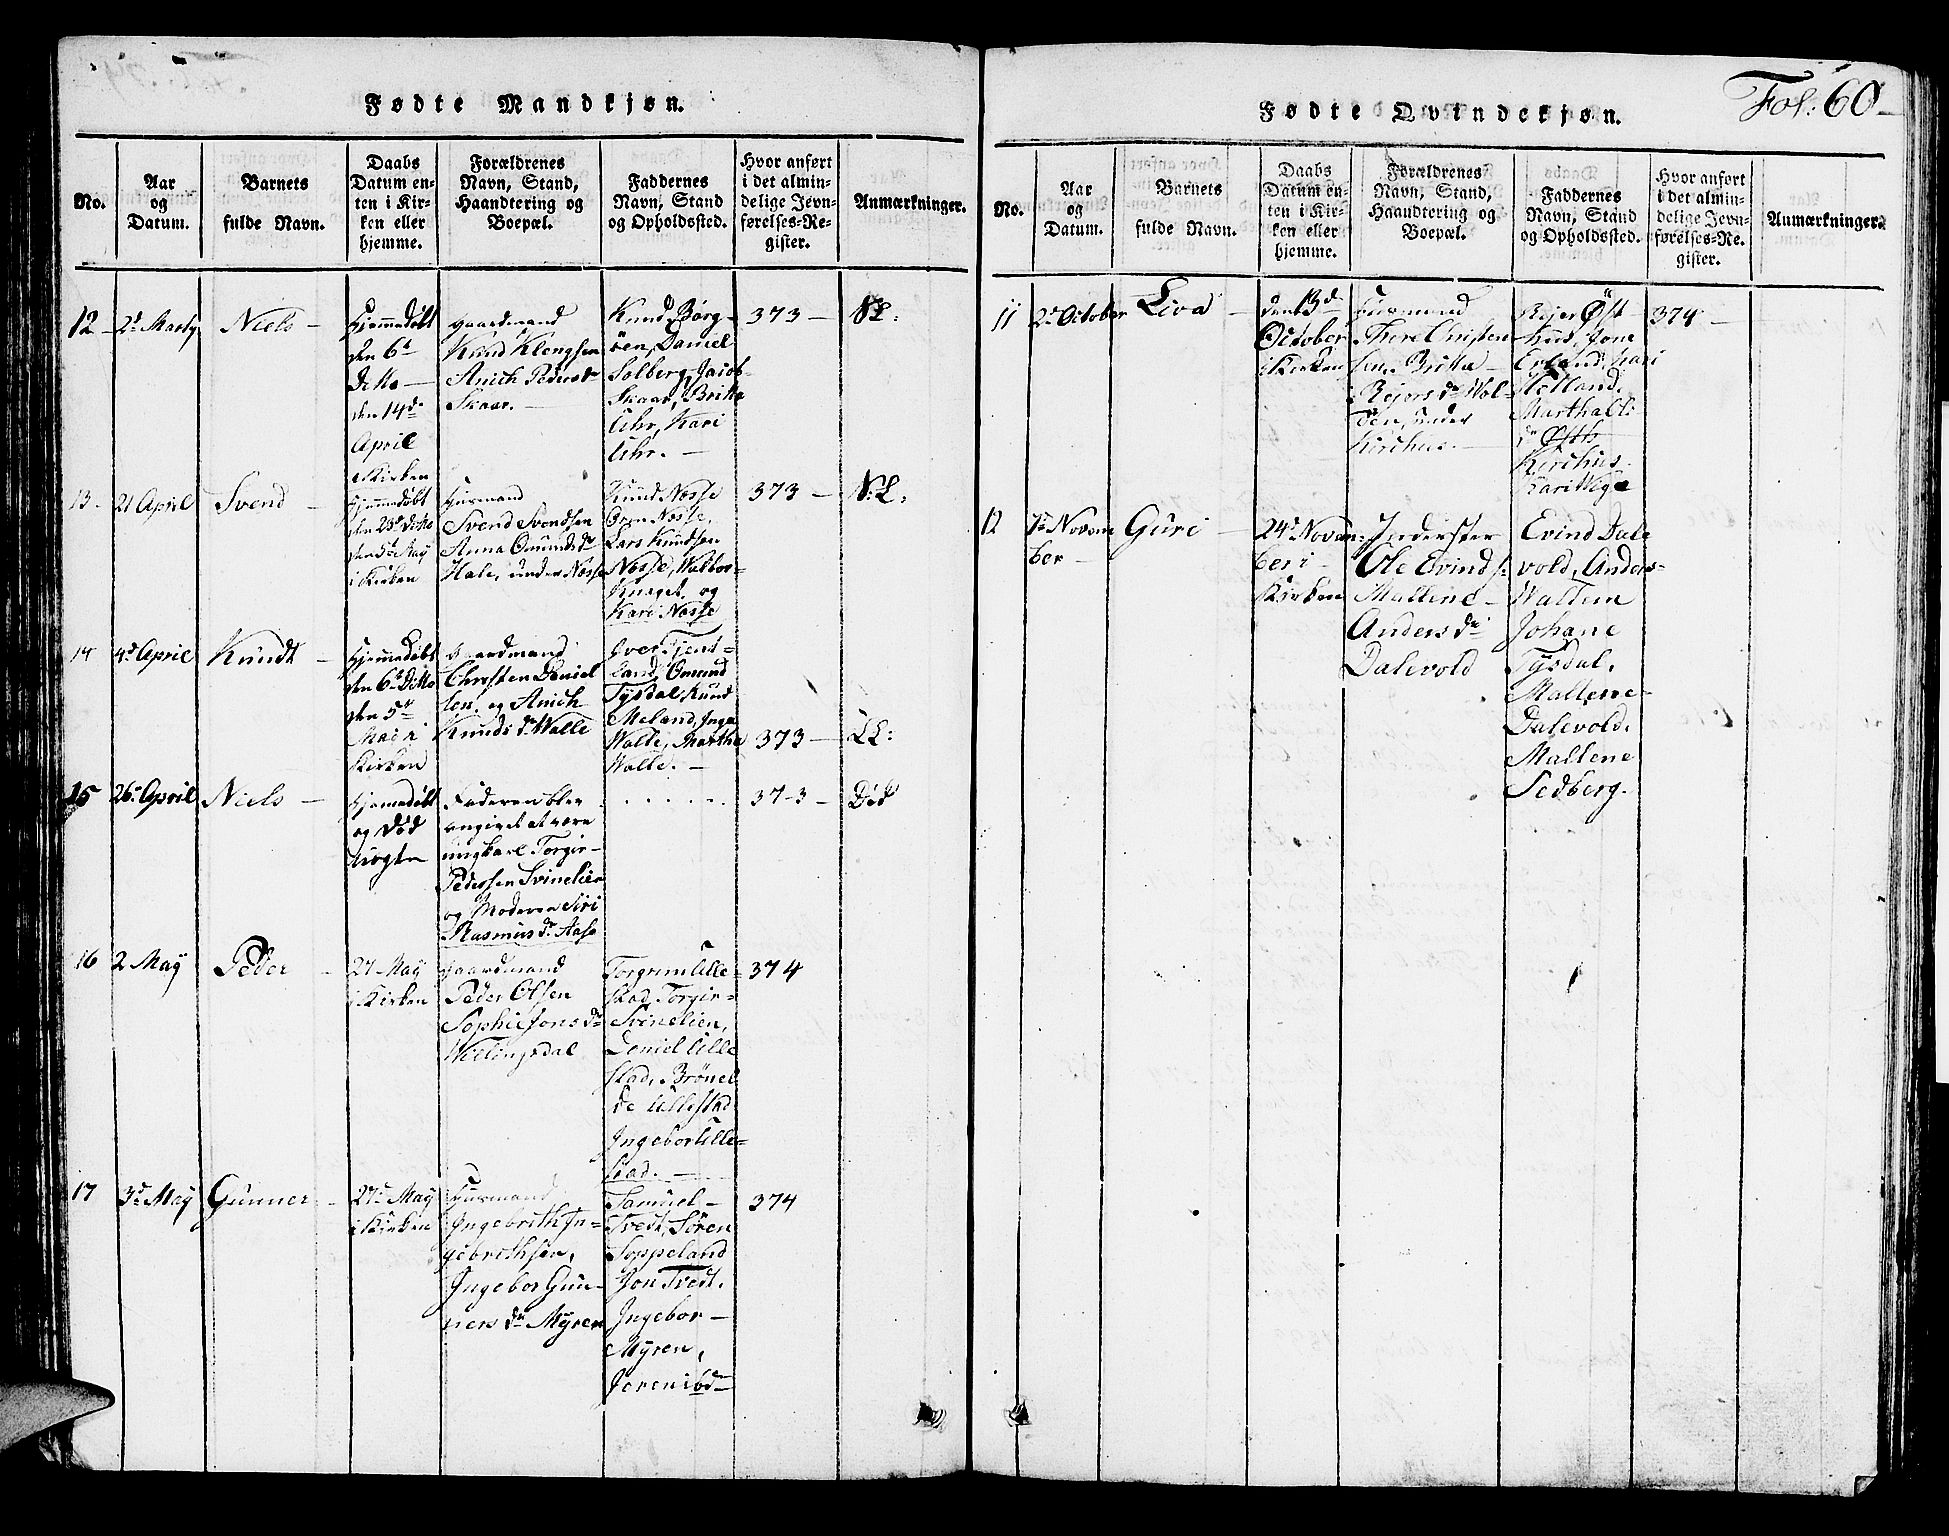 Fol: 60
Fødte Mandkjøn.
No.
Aar
og
Datum.
Barnets
fulde Navn.
Daabs
Datum en-
ten i Kir-
ken eller
hjemme.
Forældrenes
Navn, Stand,
Haandtering og
Boepæl.
Faddernes
Navn, Stand
og Opholdssted.
Hvor anført
i det almin-
delige Jevn-
førelses-Re-
gister.
Anmærkninger.
12
2d Marty
Niels
Hjemmedøbt
den 6t
ditto
den 14de
April
i Kirken
Gaardmand
Knud Klengsen
Anich Peders dr
Skaar.
Knud Børg-
øen, Daniel
Solberg, Jacob
Skaar, Britta
Uhr, Kari
Uhr.
373
N:L:
13
21 April
Svend
Hjemmedøbt
den 23d ditto
den 5te May
i Kirken
Huusmand
Svend Svendsen
Anna Omunds dr
Hale, under Nesse
Knud Nesse
Orm Nesse,
Lars Knudsen
Nesse, Walbor
og
Kari Nesse
373
N:L:
14
4d April
Kundt
Hjemmedøbt
den 6t ditto
den 5te
Mai i
Kirken
Gaardmand
Christen Daniel
sen, og Anich
Knuds dr Walle
Iver Tjent-
land, Omund
Tysdal, Knud
Meland, Inga
Walle, Martha
Walle.
373
LL:
15
26 April
Niels
Hjemedøbt
og død
Faderen blev
angivet at være
ungkarl Torgir
Pedersen Svinelien
og Moderen Siri
Rasmus dr Aase
373
Død
16
2 May
Peder
27 May
i Kirken
Gaardmand
Peder Olsen
Sophie Jons dr
Welingsdal
Torgrim Ulle-
stad, Torgir
Svinelien,
Daniel Ulle
stad, Brønel
de Ullestad
Ingebor Ulle-
stad.
374
17
3d May
Gunner
27d May
i Kirken
Huusmand
Ingebrith In-
gebrethsen,
Ingebor Gun-
ners dr Myren
Samuel
Tvedt, Søren
Soppeland
Jon Tvedt.
Ingebor
Myren,
Joren ibd
374
Fødte Qvindekjøn.
No.
Aar
og
Datum.
Barnets
fulde Navn.
Daabs
Datum en-
ten i Kir-
ken eller
hjemme.
Forældrenes
Navn, Stand,
Haandtering og
Boepæl.
Faddernes
Navn, Stand
og Opholdssted.
Hvor anført
i det almin-
delige Jevn-
førelses-Re-
gister.
Anmærkninger.
11
2d October
Liva
den 13d
October
i Kirken
Huusmand
Thore Christen
sen, Britta
Rejers dr Wol-
den, under
Kirchus.
Rejer Øst
huus, Jone
Erland, Kari
Helland,
Martha Eli
dr Østh
Kirchus,
Kari Wiga
374
12
Novem
ber
Guri
24d Novem-
ber i
Kirken
Inderster
Ole Evinds:
Mallene
Anders dr
Dalevold
Evind Dale
vold, Anders
Waltem
Johane
Tysdal,
Mallene
Dalevold,
Mallene
Sedberg.